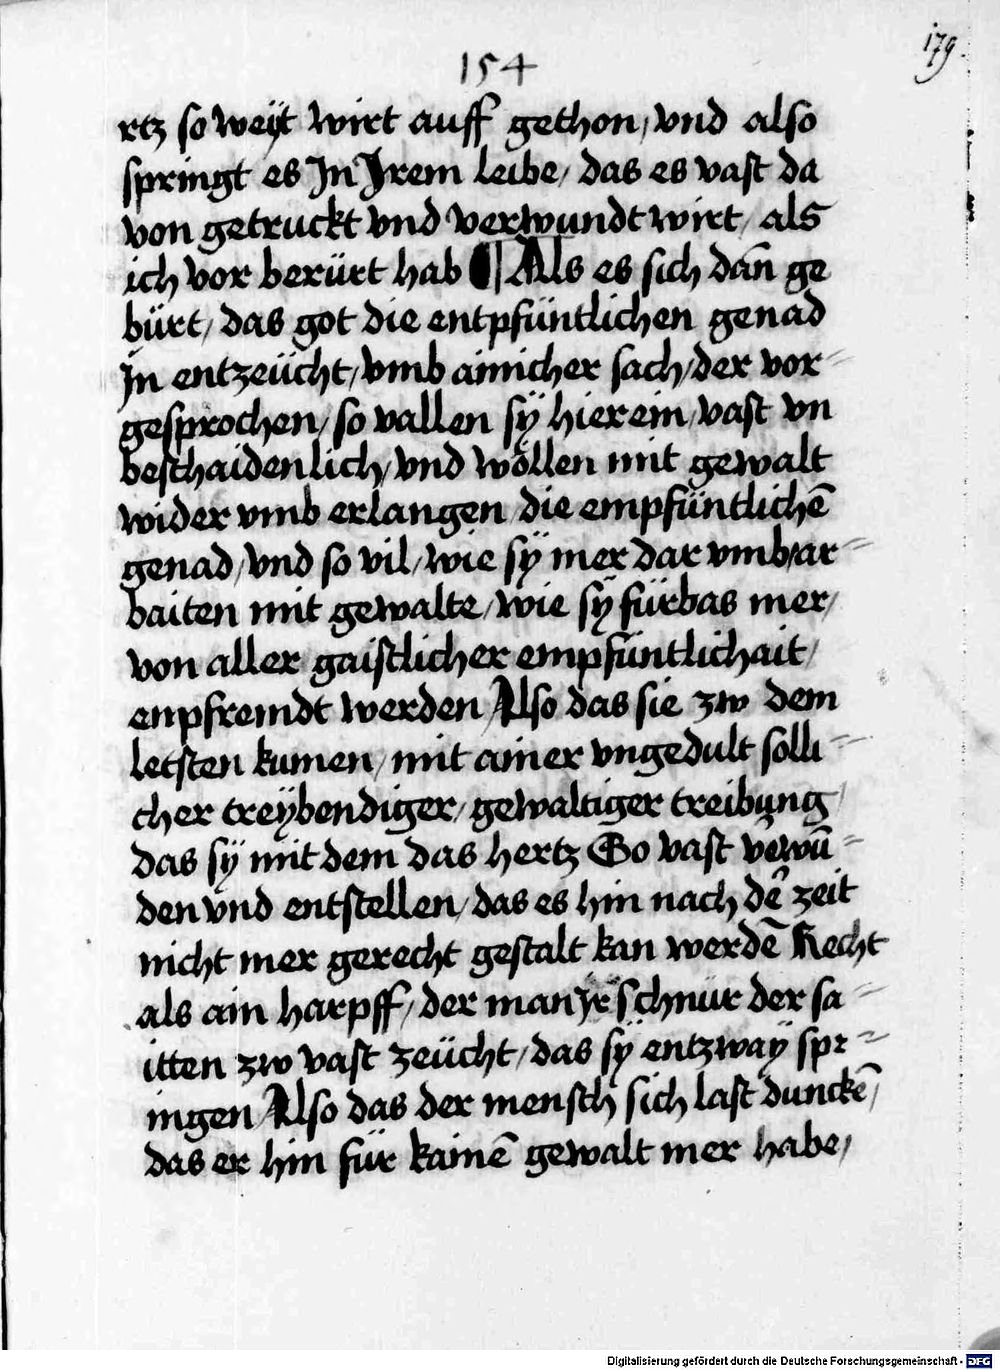 179.
154
rtz so weÿt wirt auff gethon / vnd also
springt es In Jrem leibe / das es vast da
von getruckt vnd verwundt wirt / als
ich vor berürt hab ¶ Als es sich dan̄ ge
bürt / das got die entpfüntlichen genad
Jn entzeücht / vmb ainicher sach / der vor=
gesprochen / so vallen sÿ hierein / vast vn
beschaidenlich / vnd wöllen mit gewalt
wider vmb erlangen die empfüntlichē
genad / vnd so vil / wie sÿ mer dar vmb / ar=
baiten mit gewalte / wie sÿ fürbas mer /
von aller gaistlicher empfüntlichait /
enpfremdt werden Also das sie zw dem
letsten kumen / mit ainer vngedult solli=
cher treÿbendiger / gewaltiger treibung /
das sÿ mit dem das hertz So vast v̄wū=
den vnd entstellen / das es hin nach de͛ zeit
nicht mer gerecht gestalt kan werdē Recht
als ain harpff / der man Jr schnür der sa=
itten zw vast zeücht / das sÿ entzwaÿ spr=
ingen Also das der mensch sich last dunckē /
das er hin für kainē gewalt mer habe /
Digitalisierung gefördert durch die Deutsche Forschungsgemeinschaft - DFG